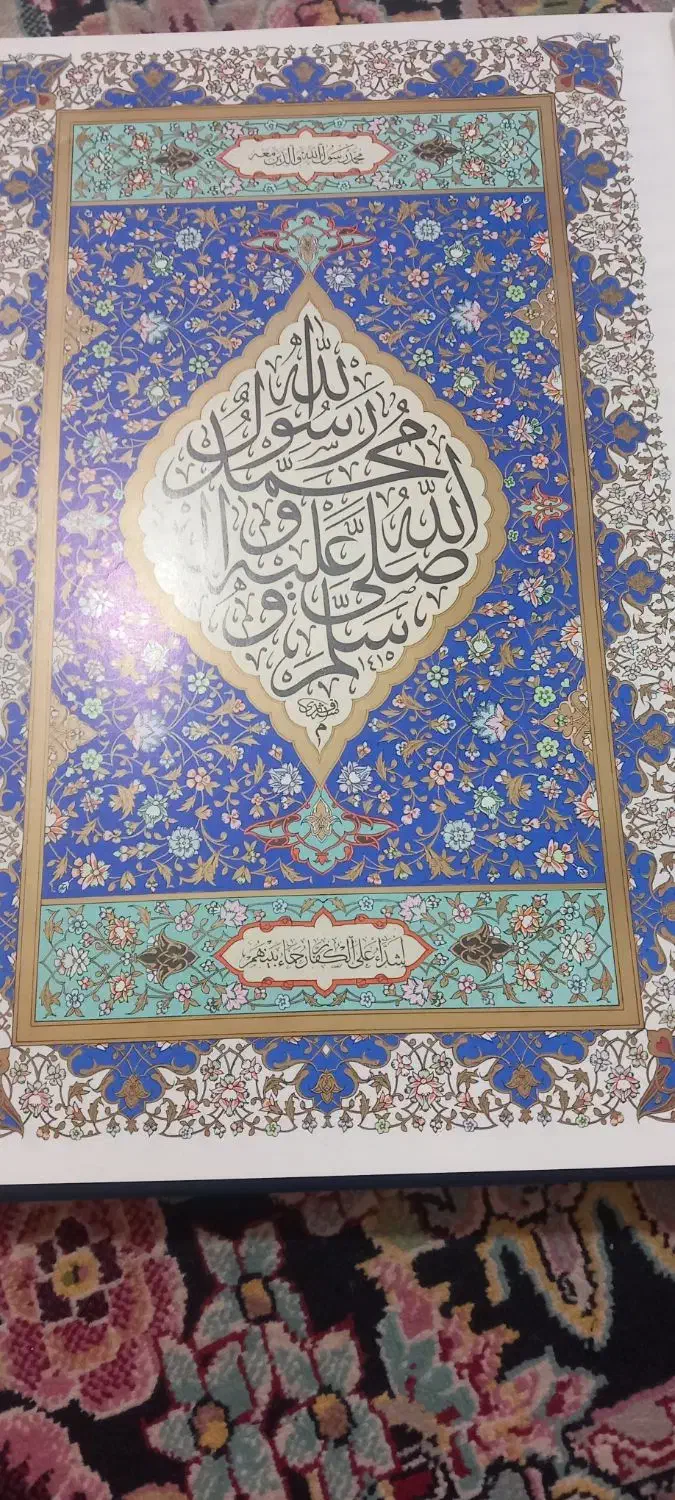 محمد رسول الله والذين معه
محمد رسول الله
صلى الله عليه و اله
و سلم
١٤١٥
اشداء على الكفار رحماء بينهم